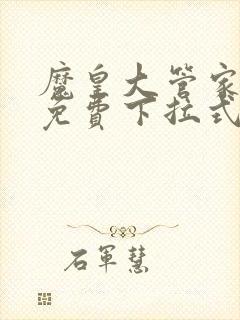 魔皇大管家
免費下拉式
石軍慧